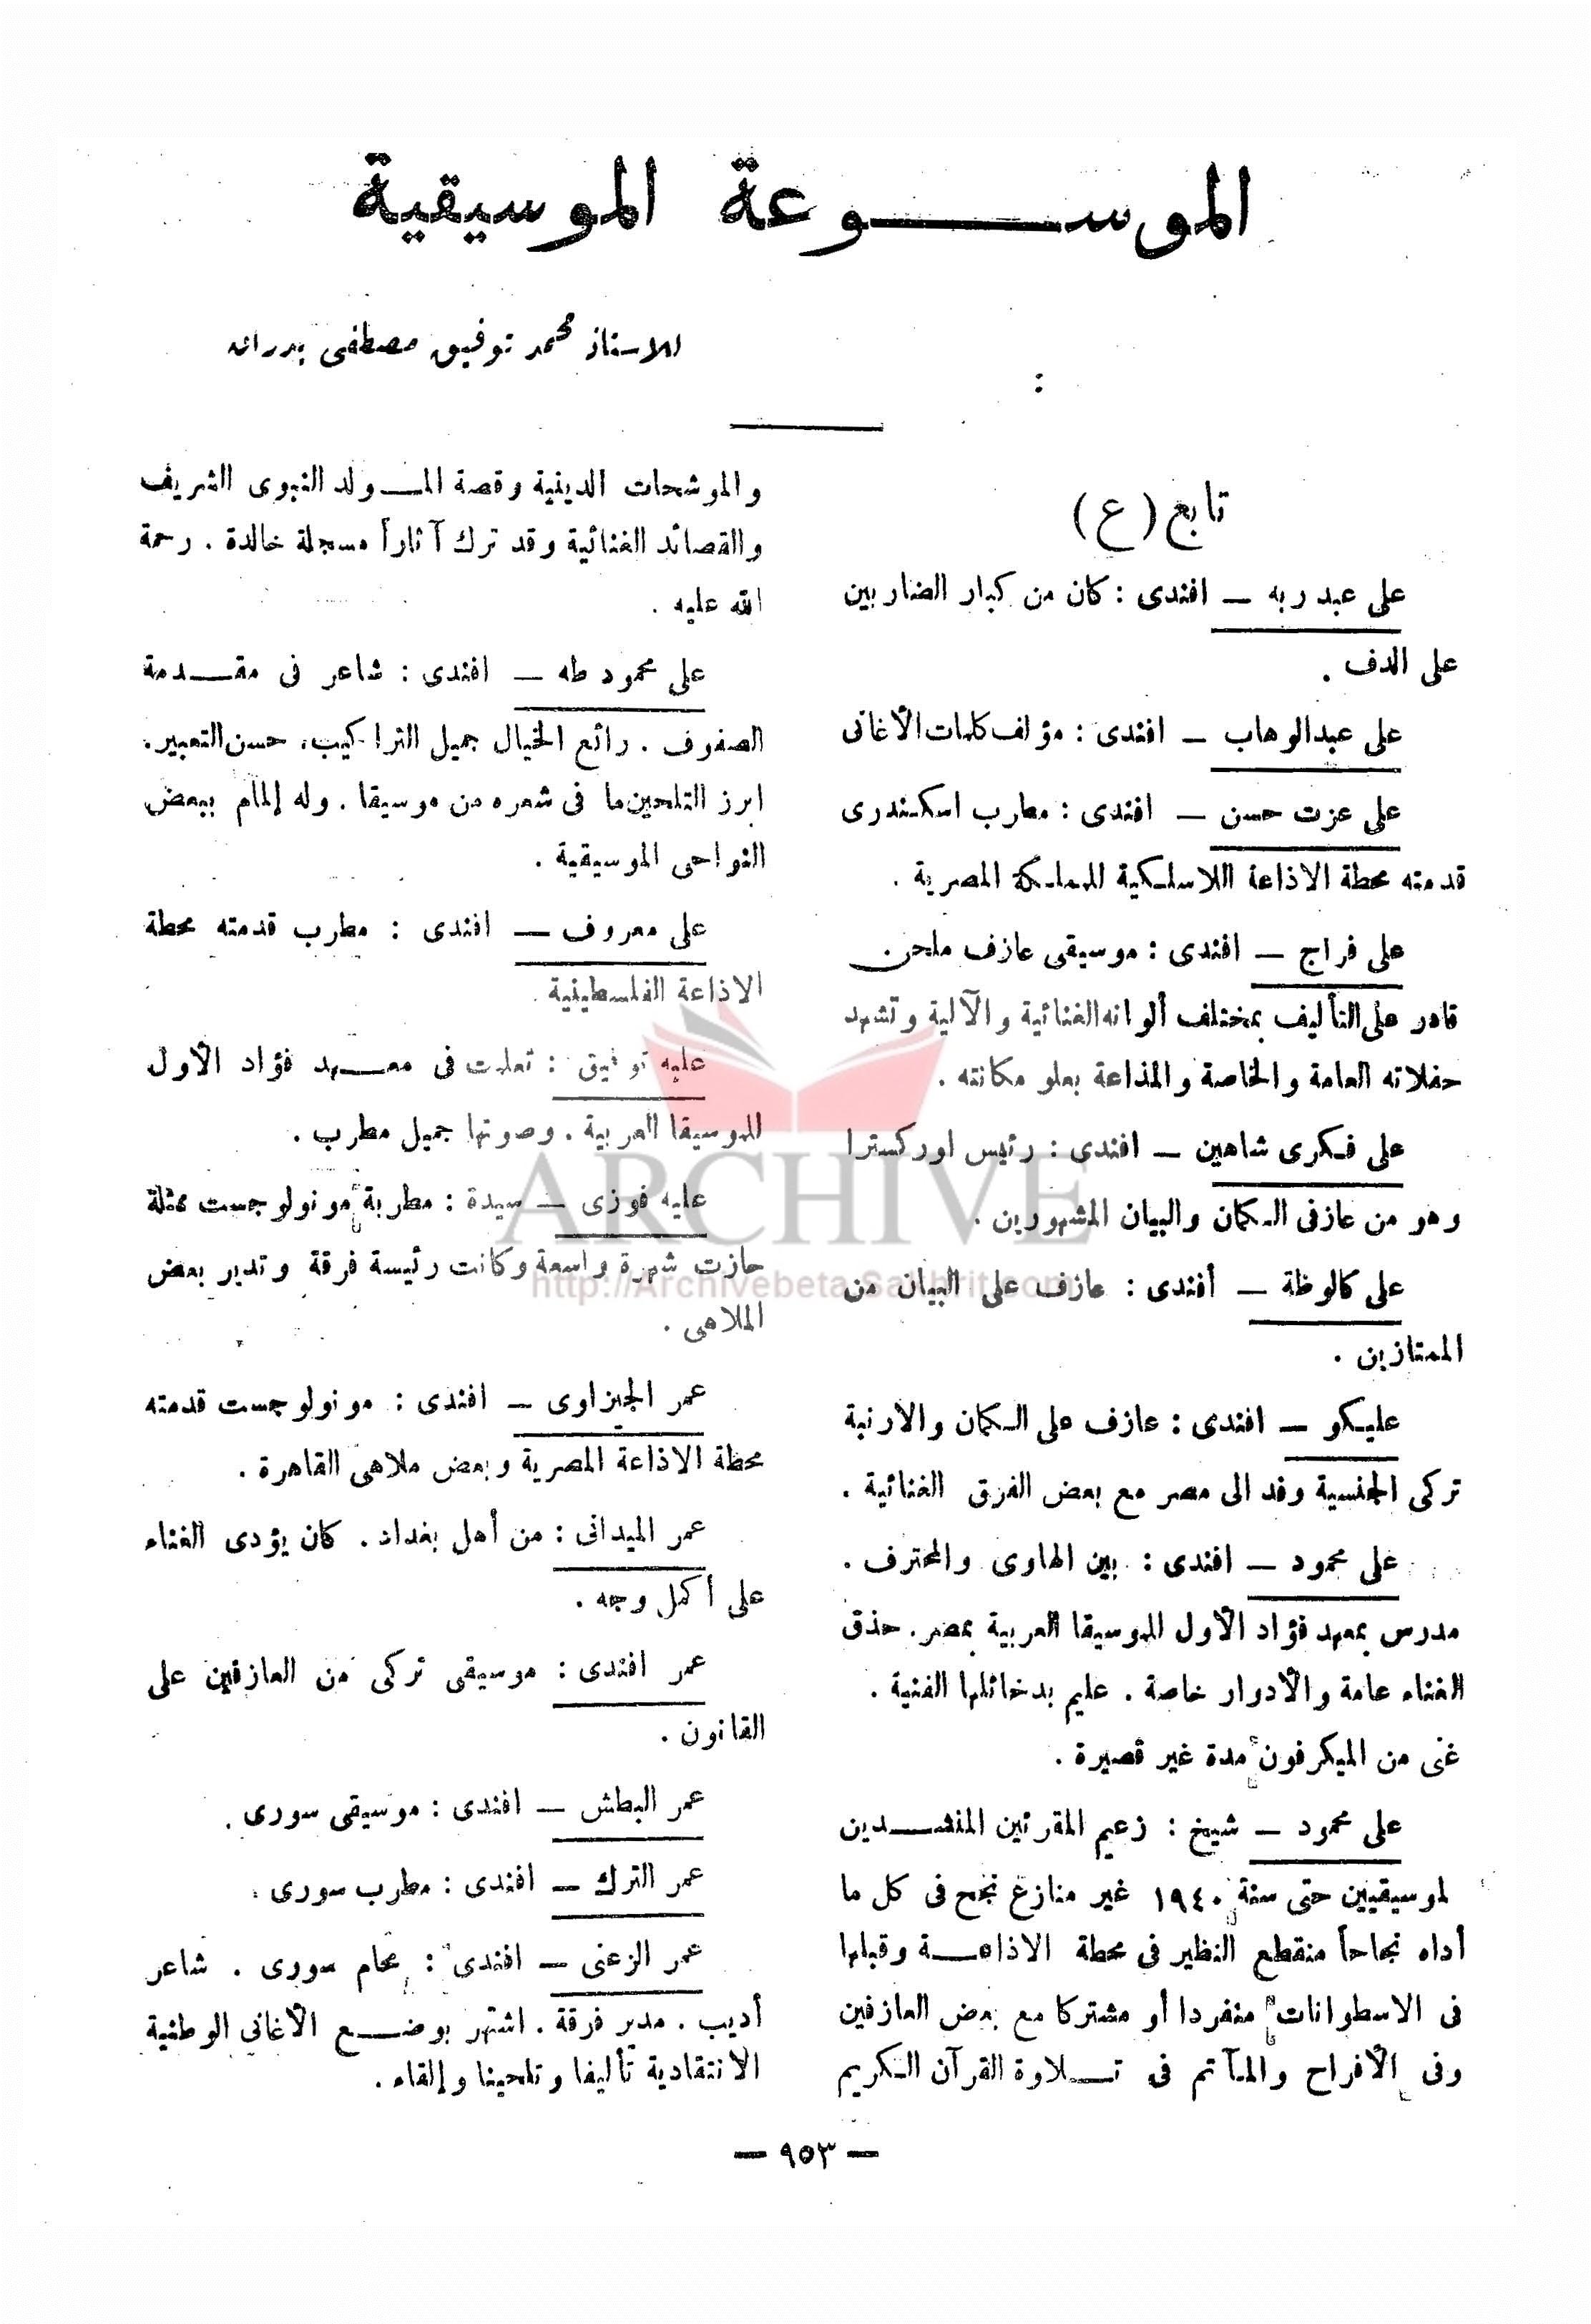 الموسوعة الموسيقية
للاستاذ محمد توفيق مصطفى بدران
تابع (ع)
على عبد ربه — افندى : كان من كبار الضاربين
على الدف .
على عبدالوهاب — افندى : مؤلف كلمات الأغانى
على عزت حسن — افندى : مطرب اسكندرى
قدمته محطة الاذاعة اللاسلكية للمملكة المصرية .
على فراج — افندى : موسيقى عازف ملحن
قادر على التأليف بمختلف ألوانه الغنائية والآلية وتشهد
حفلاته العامة والخاصة والمذاعة بعلو مكانته .
على فكرى شاهين — افندى : رئيس اوركسترا
وهو من عازفى الكمان والبيان المشهورين .
على كالوظة — أفندى : عازف على البيان من
الممتازين .
عليكو — افندى : عازف على الكمان والارنبة
تركى الجنسية وفد الى مصر مع بعض الفرق الغنائية .
على محمود — افندى : بين الهاوى والمحترف .
مدرس بمعهد فؤاد الأول للموسيقا العربية بمصر . حذق
الغناء عامة والأدوار خاصة . عليم بدخائلها الفنية .
غنى من الميكرفون مدة غير قصيرة .
على محمود — شيخ : زعيم المقرئين المنشدين
لموسيقيين حتى سنة ١٩٤٠ غير منازع نجح فى كل ما
أداه نجاحاً منقطع النظير فى محطة الاذاعة وقبلها
فى الاسطوانات منفردا أو مشتركا مع بعض العازفين
وفى الأفراح والمآتم فى تلاوة القرآن الكريم
والموشحات الدينية وقصة المولد النبوى الشريف
والقصائد الغنائية وقد ترك آثاراً مسجلة خالدة . رحمة
الله عليه .
على محمود طه — افندى : شاعر فى مقدمة
الصفوف . رائع الخيال جميل التراكيب، حسن التعبير.
ابرز التلحين ما فى شعره من موسيقا . وله إلمام ببعض
النواحى الموسيقية .
على معروف — افندى : مطرب قدمته محطة
الاذاعة الفلسطينية .
عليه توفيق : تعلمت فى معهد فؤاد الأول
للموسيقا العربية . وصوتها جميل مطرب .
عليه فوزى — سيدة : مطربة مونولوجست ممثلة
حازت شهرة واسعة وكانت رئيسة فرقة وتدير بعض
الملاهى .
عمر الجيزاوى — افندى : مونولوجست قدمته
محطة الاذاعة المصرية وبعض ملاهى القاهرة .
عمر الميدانى : من أهل بغداد . كان يؤدى الغناء
على أكمل وجه .
عمر افندى : موسيقى تركى من العازفين على
القانون .
عمر البطش — افندى : موسيقى سورى .
عمر الترك — افندى : مطرب سورى .
عمر الزعنى — افندى : محام سورى . شاعر
أديب . مدير فرقة . اشتهر بوضع الأغانى الوطنية
الانتقادية تأليفا وتلحينا وإلقاء .
— ٩٥٣ —
ARCHIVE
http://Archivebeta.Sakhrit.com